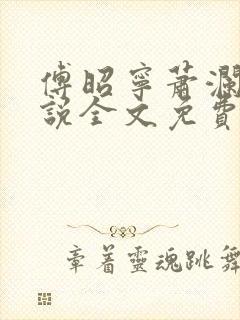 傅昭寧蕭瀾
說全文免費
章着靈魂跳舞